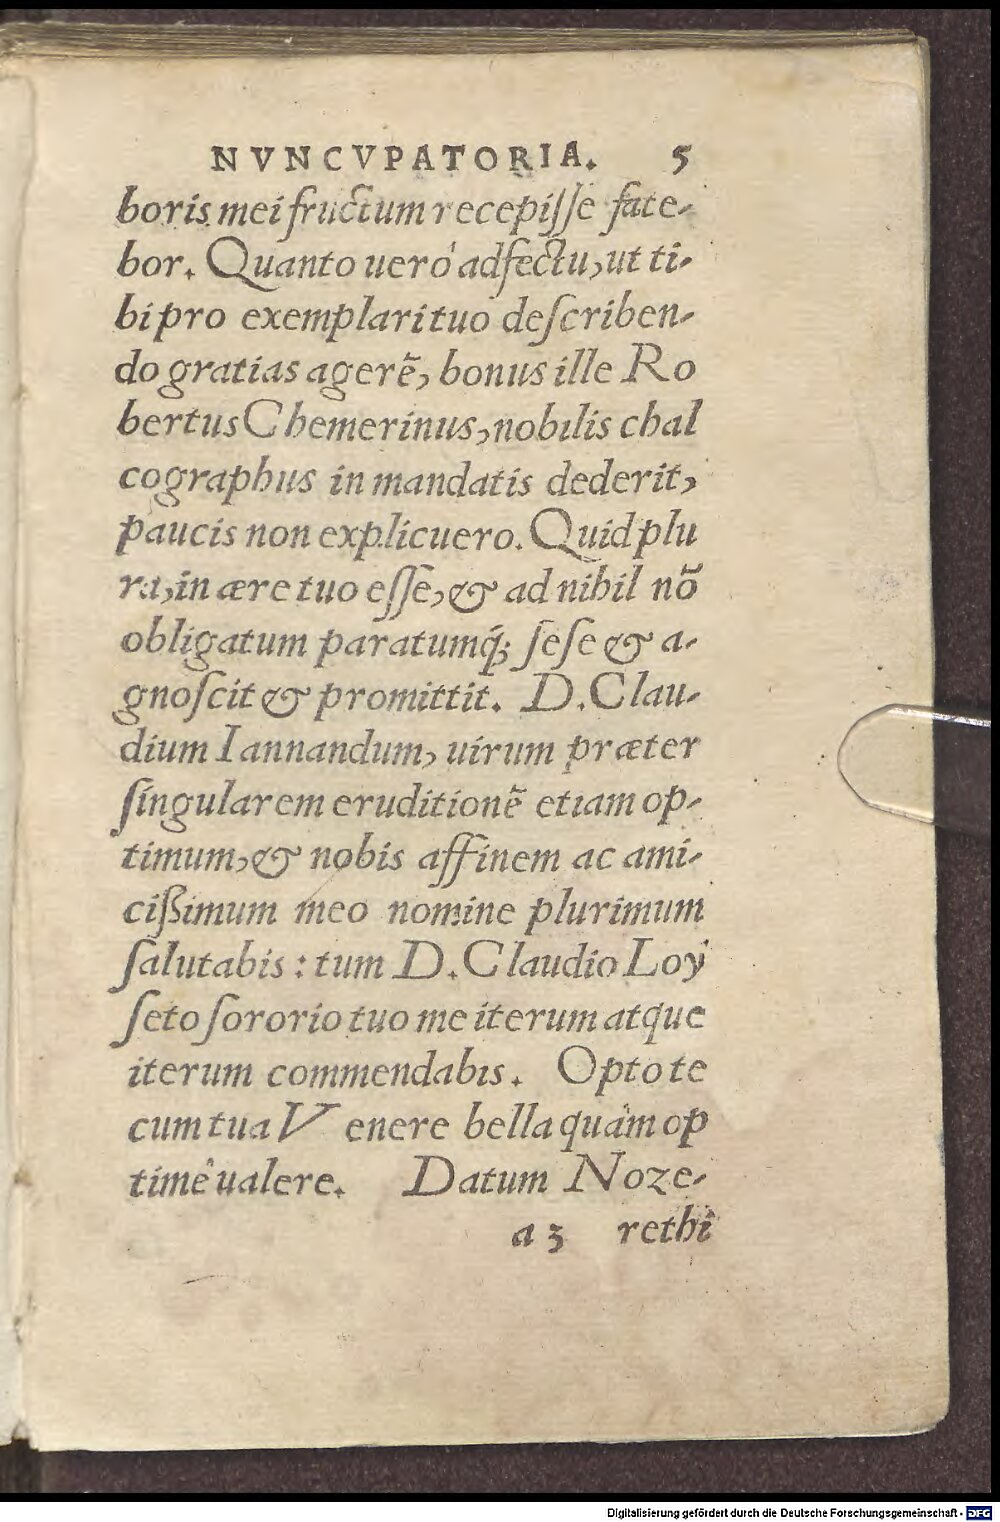 NVNCVPATORIA. 5
boris mei fructum recepiſſe fate-
bor. Quanto uerò adfectu, ut ti-
bi pro exemplari tuo deſcriben-
do gratias agerē, bonus ille Ro
bertus Chemerinus, nobilis chal
cographus in mandatis dederit,
paucis non explicuero. Quid plu
ra, in ære tuo eſſe, & ad nihil nō
obligatum paratumq́; ſeſe & a-
gnoſcit & promittit. D. Clau-
dium Iannandum, uirum præter
ſingularem eruditionē etiam op-
timum, & nobis affinem ac ami-
cißimum meo nomine plurimum
ſalutabis : tum D. Claudio Loy
ſeto ſororio tuo me iterum atque
iterum commendabis. Opto te
cum tua Venere bella quàm op
timè ualere. Datum Noze-
a 3 rethi
Digitalisierung gefördert durch die Deutsche Forschungsgemeinschaft - DFG